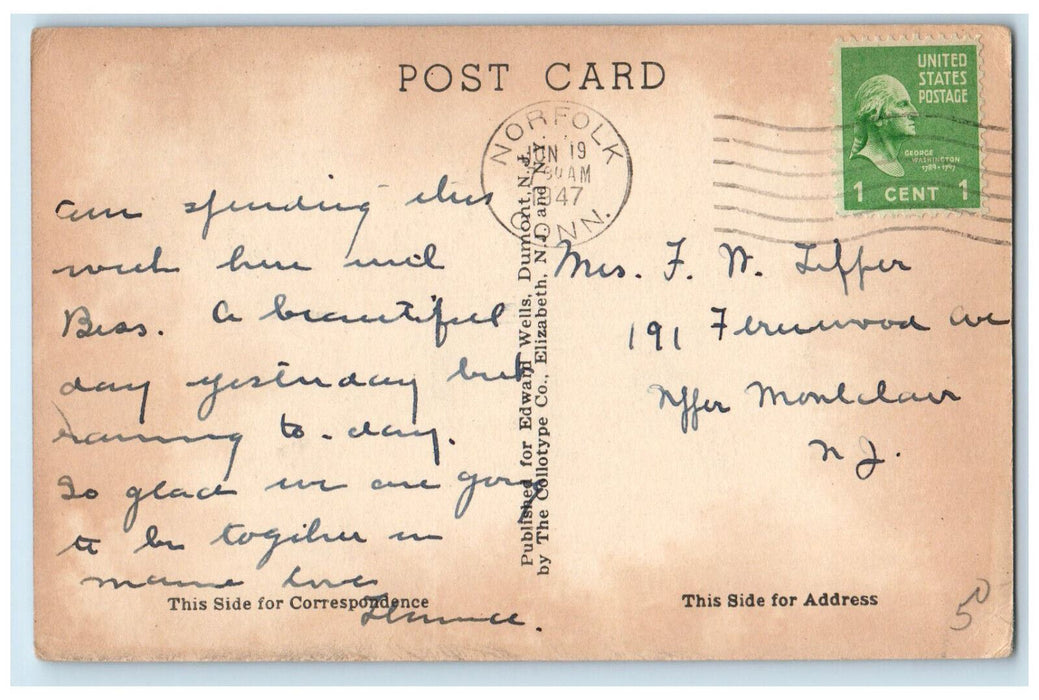 POST CARD
UNITED
STATES
POSTAGE
GEORGE
WASHINGTON
1789-1797
1 CENT 1
NORFOLK
JUN 19
AM
1947
CONN.
am spending this
week here with
Bess. A beautiful
day yesterday but
raining to-day.
So glad we are going
to be together in
Maine Love
Florence.
Published for Edward Wells, Dumont, N.J.
by The Collotype Co., Elizabeth, N.J. and N.Y.
Mrs. F. W.
191 Fernwood Ave
Upper Montclair
N J.
This Side for Correspondence
This Side for Address
50